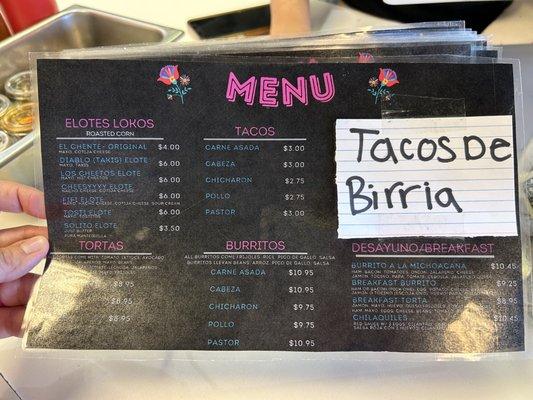 MENU
ELOTES LOKOS
ROASTED CORN
EL CHENTE- ORIGINAL $4.00
MAYO, COTIJA CHEESE
DIABLO (TAKIS) ELOTE $6.00
MAYO, TAKIS
LOS CHEETOS ELOTE $6.00
CHEESYYYY ELOTE $6.00
FIFI ELOTE $6.00
TOSTI ELOTE $6.00
SOLITO ELOTE $3.50
JUST BUTTER
PURA MANTEQUILLA
TACOS
CARNE ASADA $3.00
CABEZA $3.00
CHICHARON $2.75
POLLO $2.75
PASTOR $3.00
Tacos De
Birria
TORTAS
$8.95
$8.95
$8.95
BURRITOS
ALL BURRITOS COME FRIJOLES, RICE, PICO DE GALLO, SALSA
BURRITOS LLEVAN BEANS, ARROZ, PICO DE GALLO, SALSA
CARNE ASADA $10.95
CABEZA $10.95
CHICHARON $9.75
POLLO $9.75
PASTOR $10.95
DESAYUNO/BREAKFAST
BURRITO A LA MICHOACANA $10.45
BREAKFAST BURRITO $9.25
BREAKFAST TORTA $8.95
CHILAQUILES $10.45